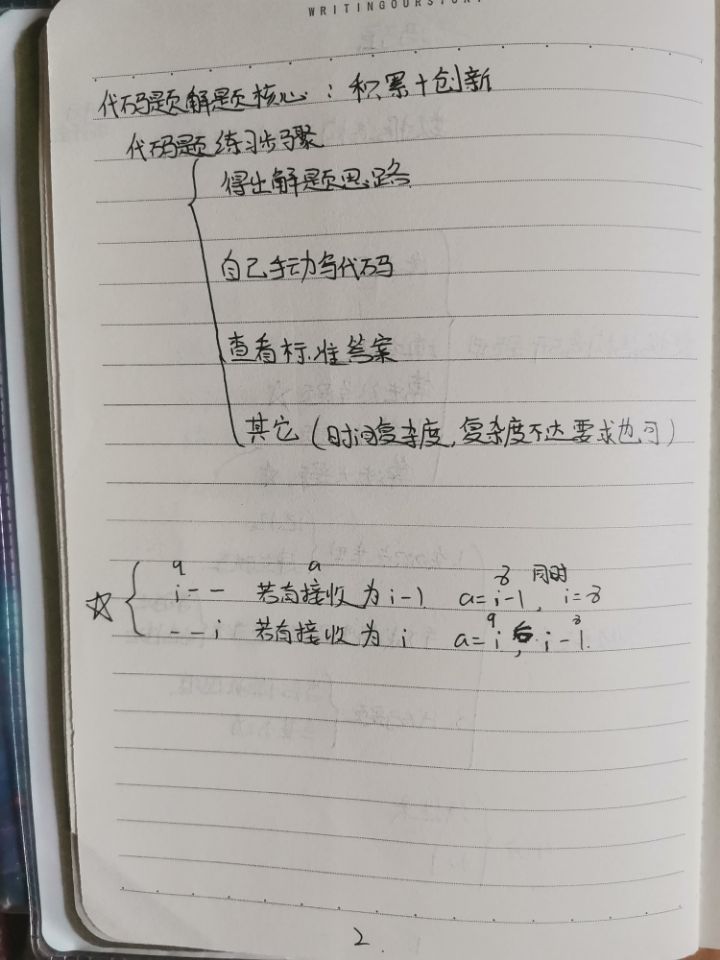 WRITINGOURSTORY
代码题解题核心：积累+创新
代码题练习步骤
得出解题思路
自己手动写代码
查看标准答案
其它（时间复杂度，复杂度不达要求也可）
9 a 8 同时
☆ i-- 若有接收为 i-1 a=i-1, i=8
9 8
--i 若有接收为 i a=i, 后 i-1.
2